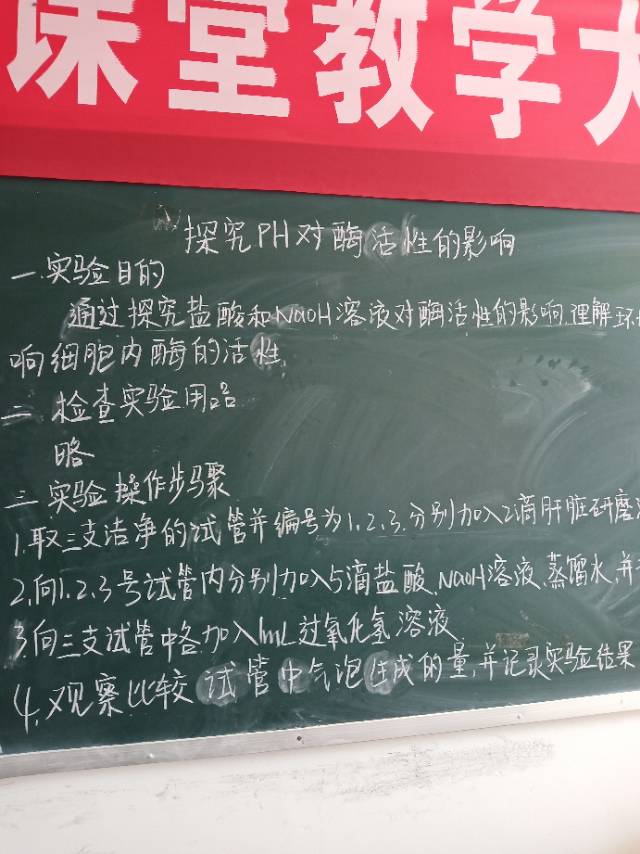 课堂教学大
探究PH对酶活性的影响
一.实验目的
通过探究盐酸和NaOH溶液对酶活性的影响.理解环
响细胞内酶的活性.
二 检查实验用品
略
三 实验操作步骤
1.取三支洁净的试管并编号为1.2.3.分别加入2滴肝脏研磨
2.向1.2.3号试管内分别加入5滴盐酸.NaOH溶液.蒸馏水,并
3.向三支试管中各加入1mL过氧化氢溶液
4.观察比较试管中气泡生成的量,并记录实验结果